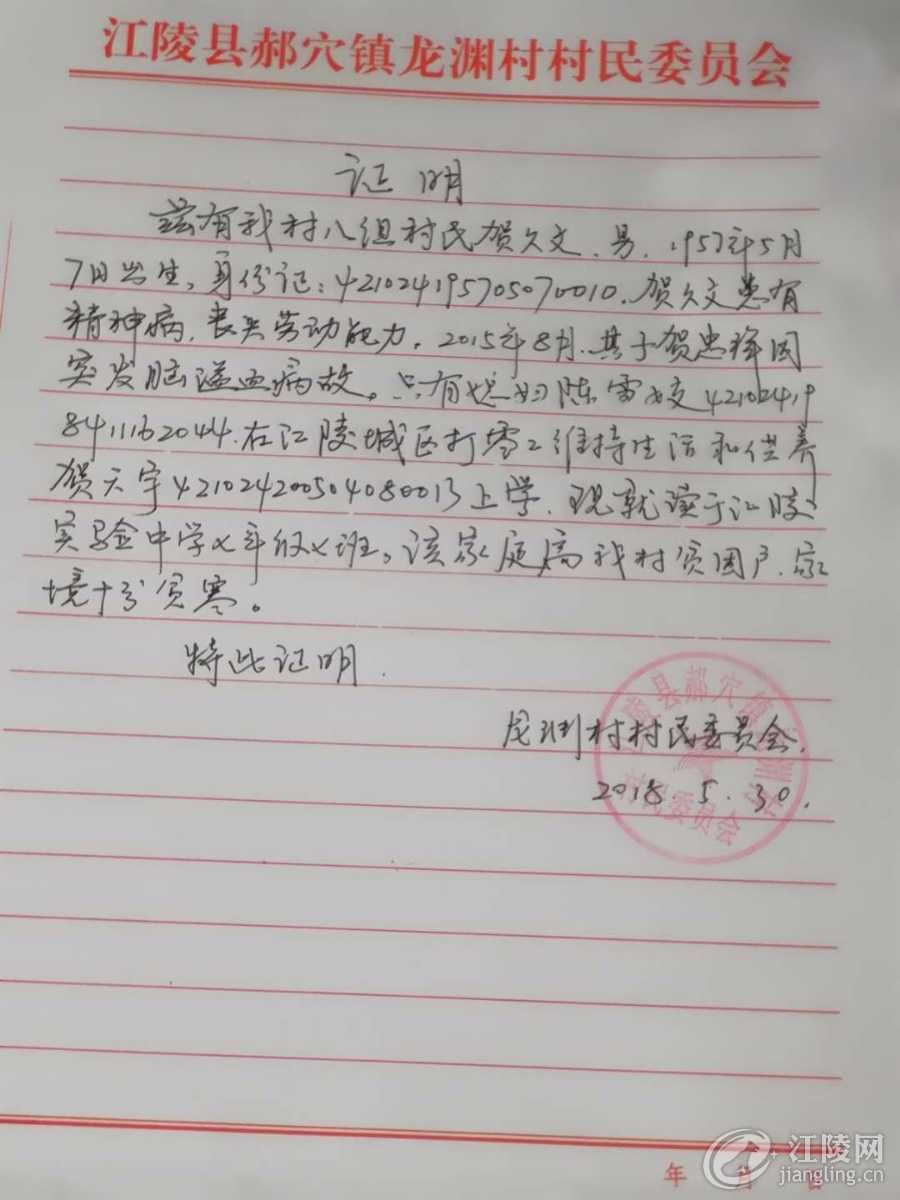 江陵县郝穴镇龙渊村村民委员会
证明
兹有我村八组村民贺久文、男、1957年5月
7日出生,身份证:421024195705070010.贺久文患有
精神病,丧失劳动能力,2015年8月.其子贺忠 因
突发脑溢血病故。只有媳妇陈雷 42102419
8411162044.在江陵城区打零工维持生活和供养
贺天宇421024200504080013上学.现就读于江陵
实验中学七年级七班。该家庭属我村贫困户、家
境十分贫寒。
特此证明.
龙渊村村民委员会.
2018.5.30.
江陵县郝穴镇龙渊村
村民委员会
年 月 日
江陵网
jiangling.cn